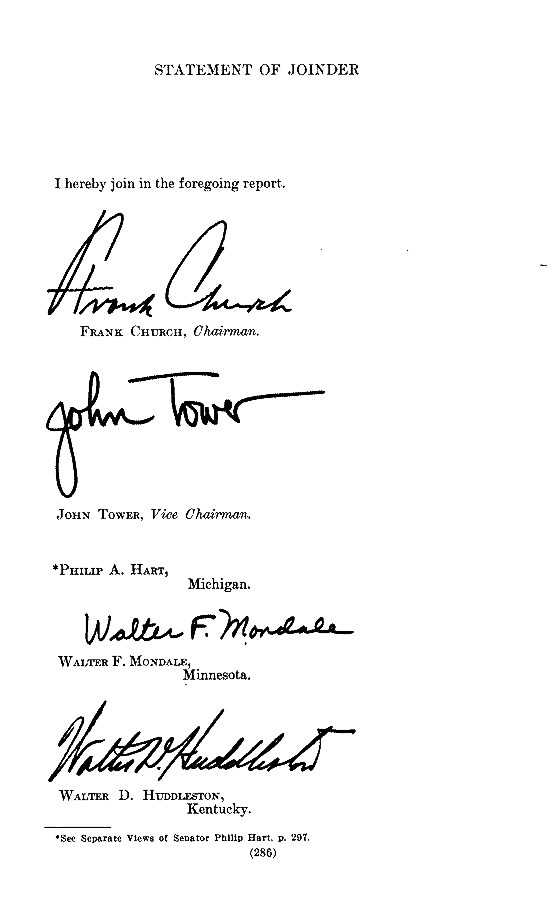 STATEMENT OF JOINDER
I hereby join in the foregoing report.
Frank Church
FRANK CHURCH, Chairman.
John Tower
JOHN TOWER, Vice Chairman.
*PHILIP A. HART,
Michigan.
Walter F. Mondale
WALTER F. MONDALE,
Minnesota.
Walter D. Huddleston
WALTER D. HUDDLESTON,
Kentucky.
*See Separate Views of Senator Philip Hart. p. 297.
(286)